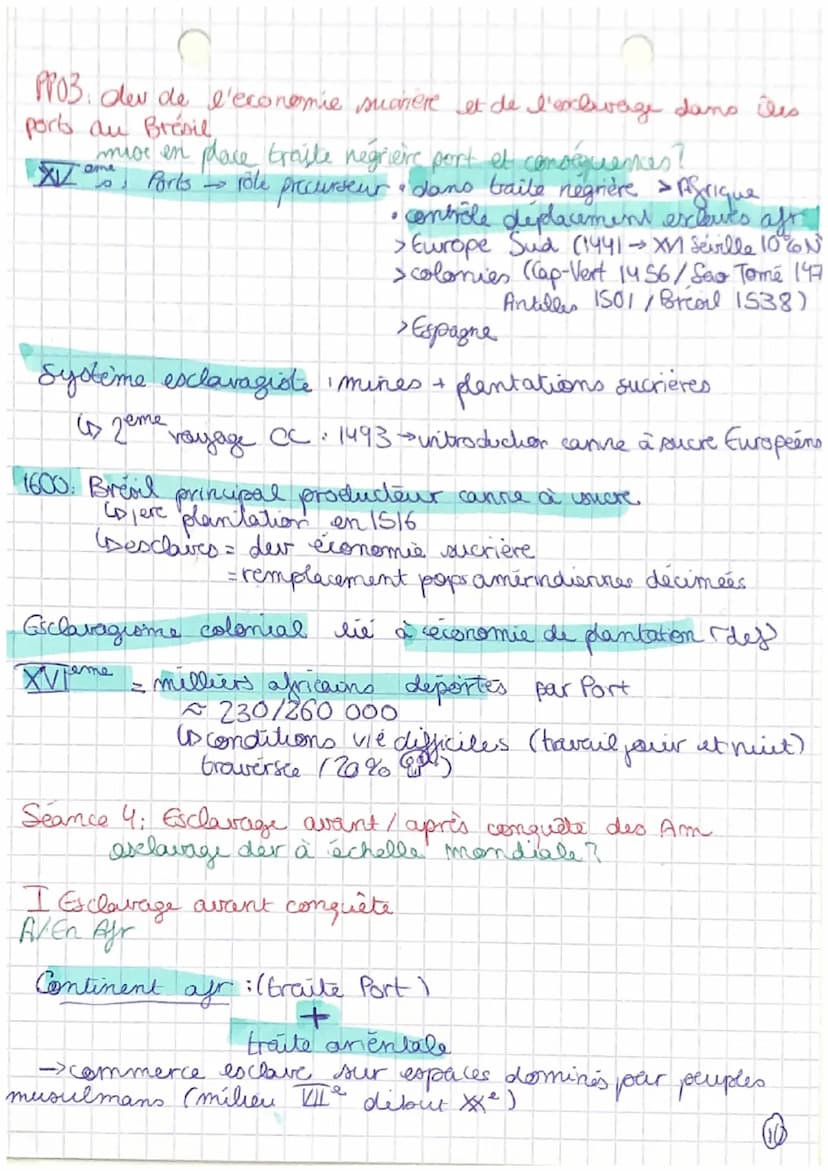 PPO3: dev de l'economie sucrière et de l'esclavage dans îles
ports au Brésil
mise en place traite négrière port et conséquences?
XV ème s, Ports → rôle precurseur • dans traite négrière > Afrique
• contrôle déplacement esclaves afr
> Europe Sud (1441 → XVI Séville 10% N
> colonies (Cap-Vert 1456 / Sao Tomé 147
Antilles 1501 / Brésil 1538)
> Espagne
Système esclavagiste : mines + plantations sucrières
↳ 2eme voyage CC : 1493 → introduction canne à sucre Européens
1600: Brésil principal producteur canne à sucre
↳ 1ere plantation en 1516
↳ esclaves = dev économie sucrière
= remplacement pops amérindiennes décimées
Esclavagisme colonial lié à économie de plantation (def)
XVI eme = milliers africains déportés par Port
≈ 230/260 000
↳ conditions vie difficiles (travail jour et nuit)
traversée (20%
Séance 4: Esclavage avant / après conquête des Am
esclavage dev à échelle mondiale?
I Esclavage avant conquête
A/ En Afr
Continent afr : (traite Port)
+
traite orientale
→ commerce esclave sur espaces dominés par peuples
musulmans (milieu VIIe début XXe)
10